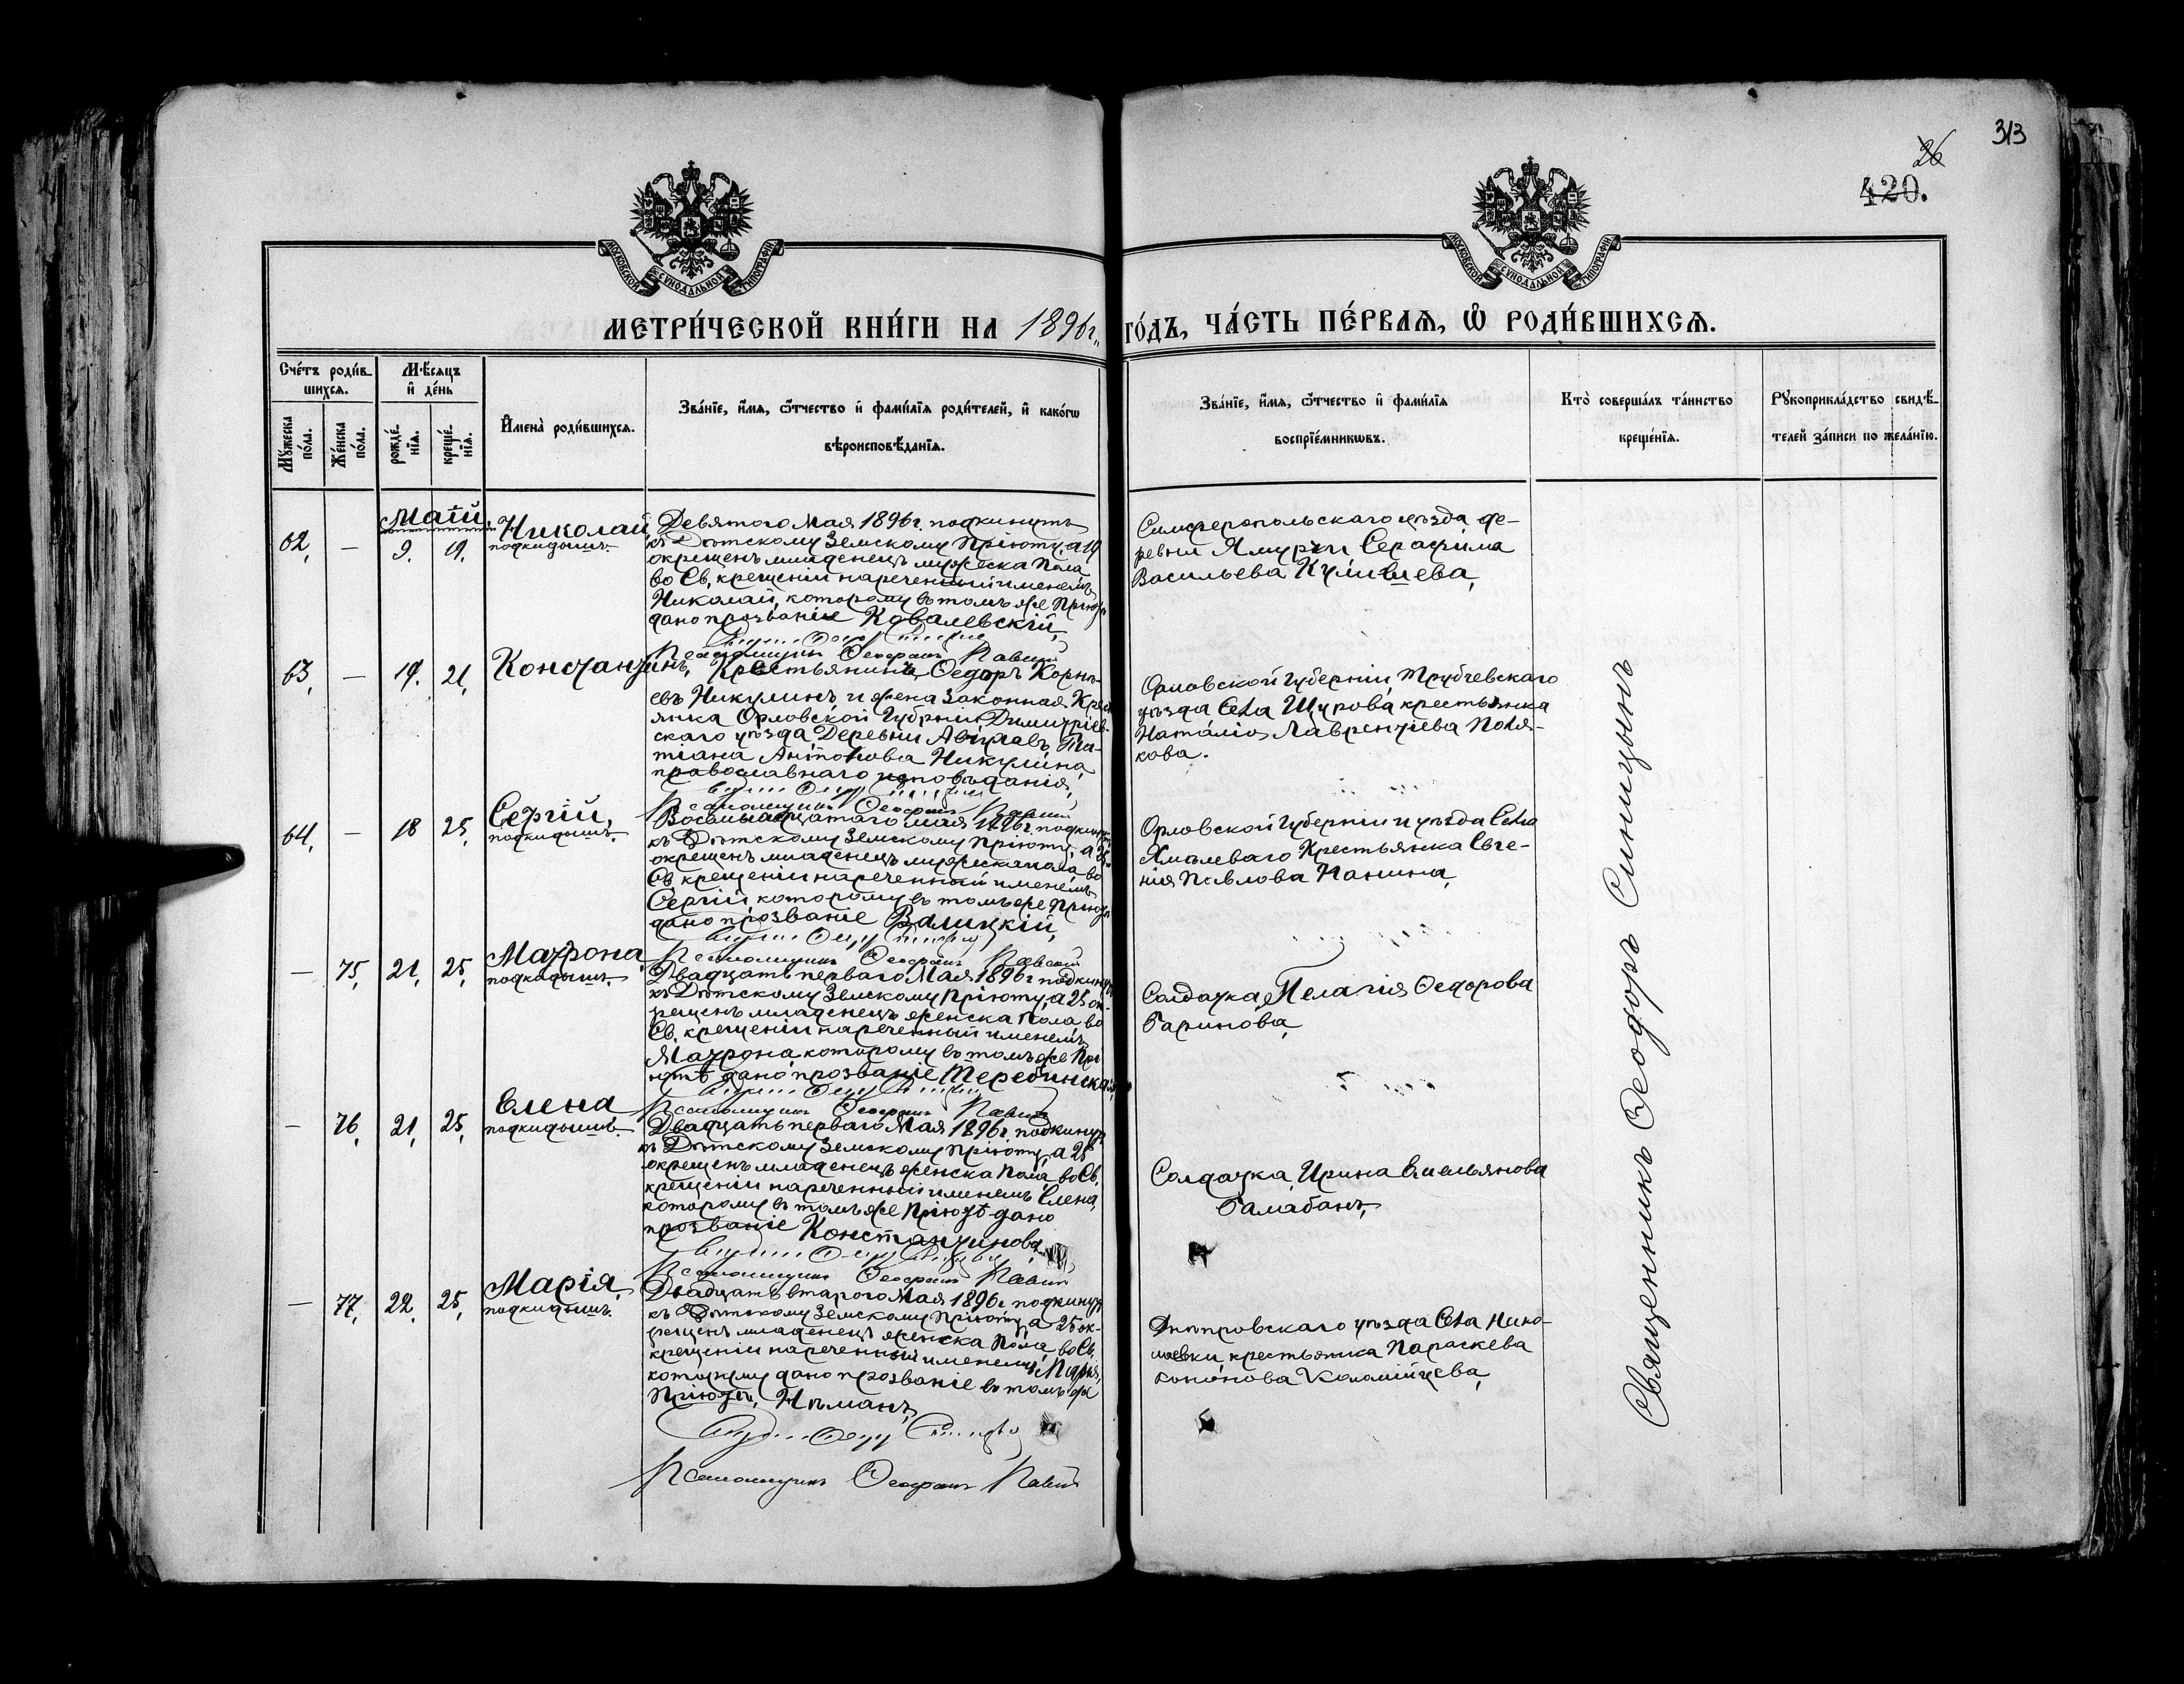 313
26
420.
МОСКОВСКОЙ СУНОДАЛЬНОЙ ТИПОГРАФІИ
МОСКОВСКОЙ СУНОДАЛЬНОЙ ТИПОГРАФІИ
МЕТРИ́ЧЕСКОЙ КНИ́ГИ НА 1896 г. ГО́ДЪ, ЧА́СТЬ ПЕ́РВАѦ, Ѽ РОДИ́ВШИХСѦ.
Сче́тъ роди́вшихсѧ.
Мꙋ́жеска по́ла.
Же́нска по́ла.
Мѣ́сѧцъ и҆ де́нь
рожде́нїѧ.
креще́нїѧ.
И҆мена̀ роди́вшихсѧ.
Зва́нїе, и҆́мѧ, ѻ҆́тчество и҆ фами́лїѧ роди́телей, и҆ како́гѡ
вѣроисповѣ́данїѧ.
Зва́нїе, и҆́мѧ, ѻ҆́тчество и҆ фами́лїѧ
воспрїе́мникѡвъ.
Кто̀ соверша́лъ та́инство
креще́нїѧ.
Рꙋкоприкла́дство свидѣ́-
телей за́писи по жела́нїю.
Маій,
62, — 9. 19. Николай, подкидышъ.
Девятого Мая 1896 г. подкинутъ
къ Дѣтскому Земскому Пріюту, а 19
окрещенъ младенецъ мужеска пола
во Св. крещеніи нареченный именемъ
Николай, которому въ томъ же Пріютѣ
дано прозваніе Ковалевскій,
Псаломщикъ Ѳеофанъ
Симферопольскаго уѣзда де-
ревни Ямурчи Серафима
Васильева Кулишева,
63, — 19. 21, Константинъ,
Крестьянинъ Ѳедоръ Корнѣ-
евъ Никулинъ и жена законная Крест
янка Орловской Губрніи, Димитріев-
скаго уѣзда Деревни Та-
тіана Антонова Никулина
православнаго исповѣданія,
Псаломщикъ Ѳеофанъ
Орловской Губерніи, Трубчевскаго
уѣзда Села Щурова крестьянка
Наталія Лаврентіева Поля-
кова.
64, — 18 25, Сергій, подкидышъ.
Восемьнадцатаго мая 1896 г. подкинутъ
къ Дѣтскому Земскому Пріюту, а 25
окрещенъ младенецъ мужеска пола во
Св. крещеніи нареченный именемъ
Сергій, которому въ томъ же Пріютѣ
дано прозваніе Валицкій,
Псаломщикъ Ѳеофанъ
Орловской Губерніи и уѣзда Села
Хмѣлеваго Крестьянка Евге-
нія Павлова Панина,
— 75, 21, 25, Матрона, подкидышъ.
Двадцать перваго Мая 1896 г. подкинутъ
къ Дѣтскому Земскому Пріюту, а 25 ок-
рещенъ младенецъ женска пола, во
Св. крещеніи нареченный именемъ
Матрона, которому въ томъ же Прі
ютѣ дано прозваніе Теребинская,
Псаломщикъ Ѳеофанъ
Солдатка, Пелагія Ѳедорова
Баринова,
— 76, 21, 25, Елена, подкидышъ.
Двадцать перваго Мая 1896 г. подкинутъ
къ Дѣтскому Земскому Пріюту, а 25
окрещенъ младенецъ женска пола, во Св.
крещеніи нареченный именемъ Елена,
которому въ томъ же Пріютѣ дано
прозваніе Константинова,
Псаломщикъ Ѳеофанъ
Солдатка, Ирина Емельянова
Балабанъ,
— 77, 22, 25, Марія, подкидышъ.
Двадцать втарого Мая 1896 г. подкинутъ
къ Дѣтскому Земскому Пріюту, а 25 ок-
рещенъ младенецъ женска пола, во Св.
крещеніи нареченный именемъ Марія,
которому дано прозваніе въ томъ же
Пріютѣ, Нѣманъ,
Псаломщикъ Ѳеофанъ
Днѣпровскаго уѣзда Села Нико-
лаевки, крестьянка Параскева
Кононова Коломійцева,
Священникъ Ѳеодоръ Синицынъ